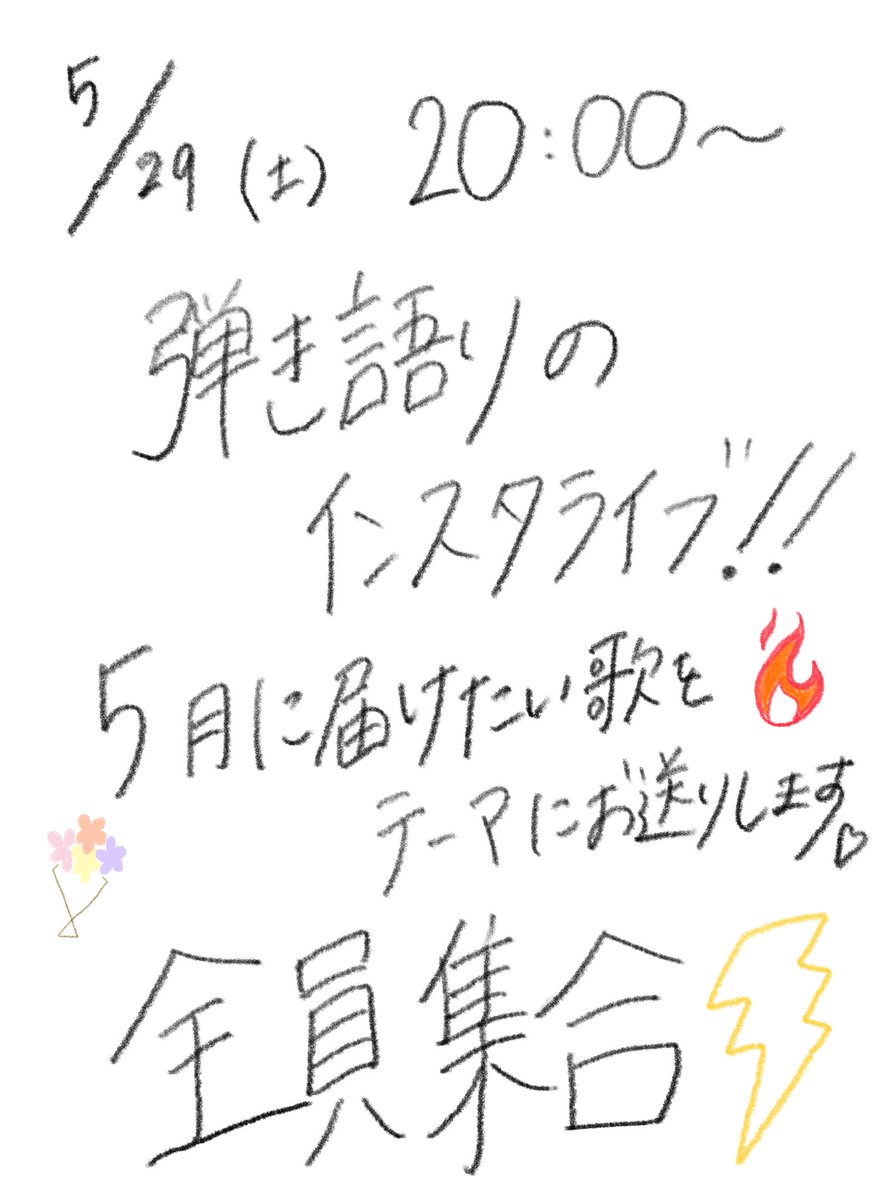 5/29(土) 20:00〜
弾き語りの
インスタライブ!!
5月に届けたい歌を
テーマにお送りします♡
全員集合